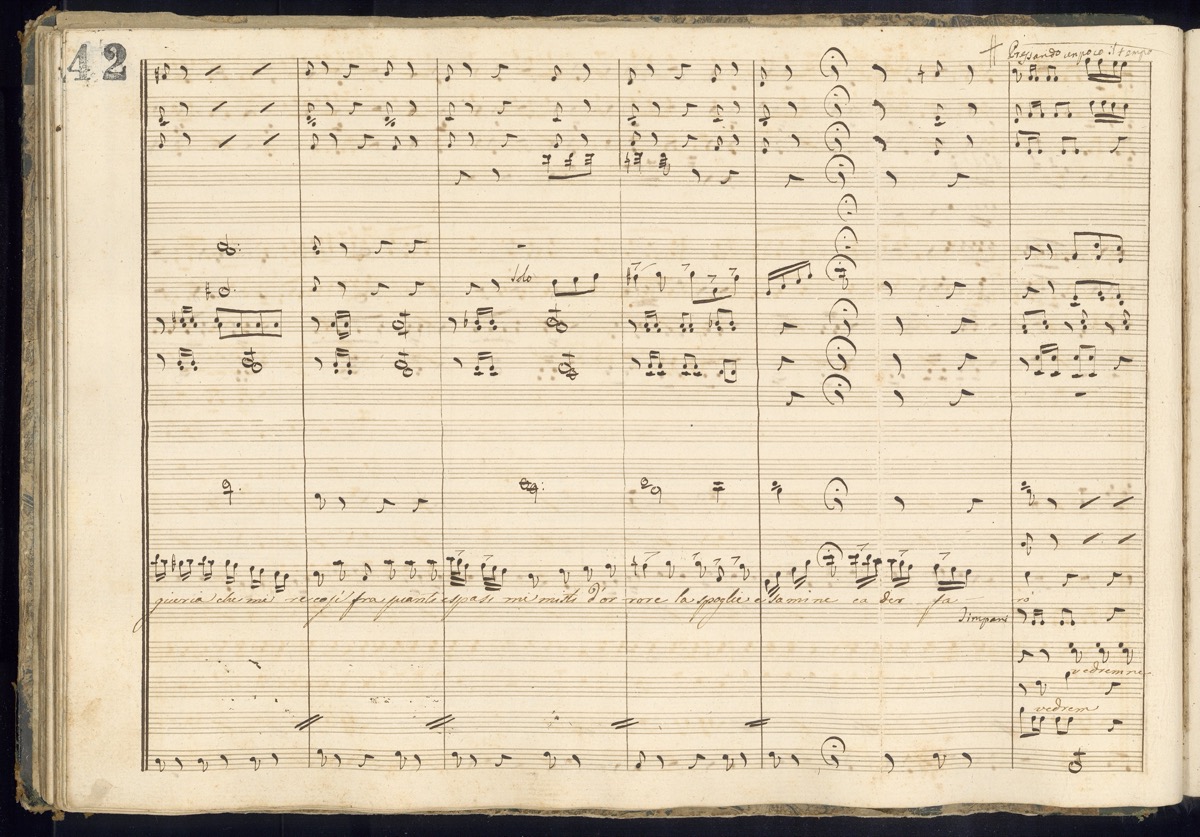 42
Pressando un poco il tempo
Solo
giuria che mi re fra quanti spasi mi misti d'or rore la spoglie esamine ca der fa rò
Timpani
vedremne
vedrem